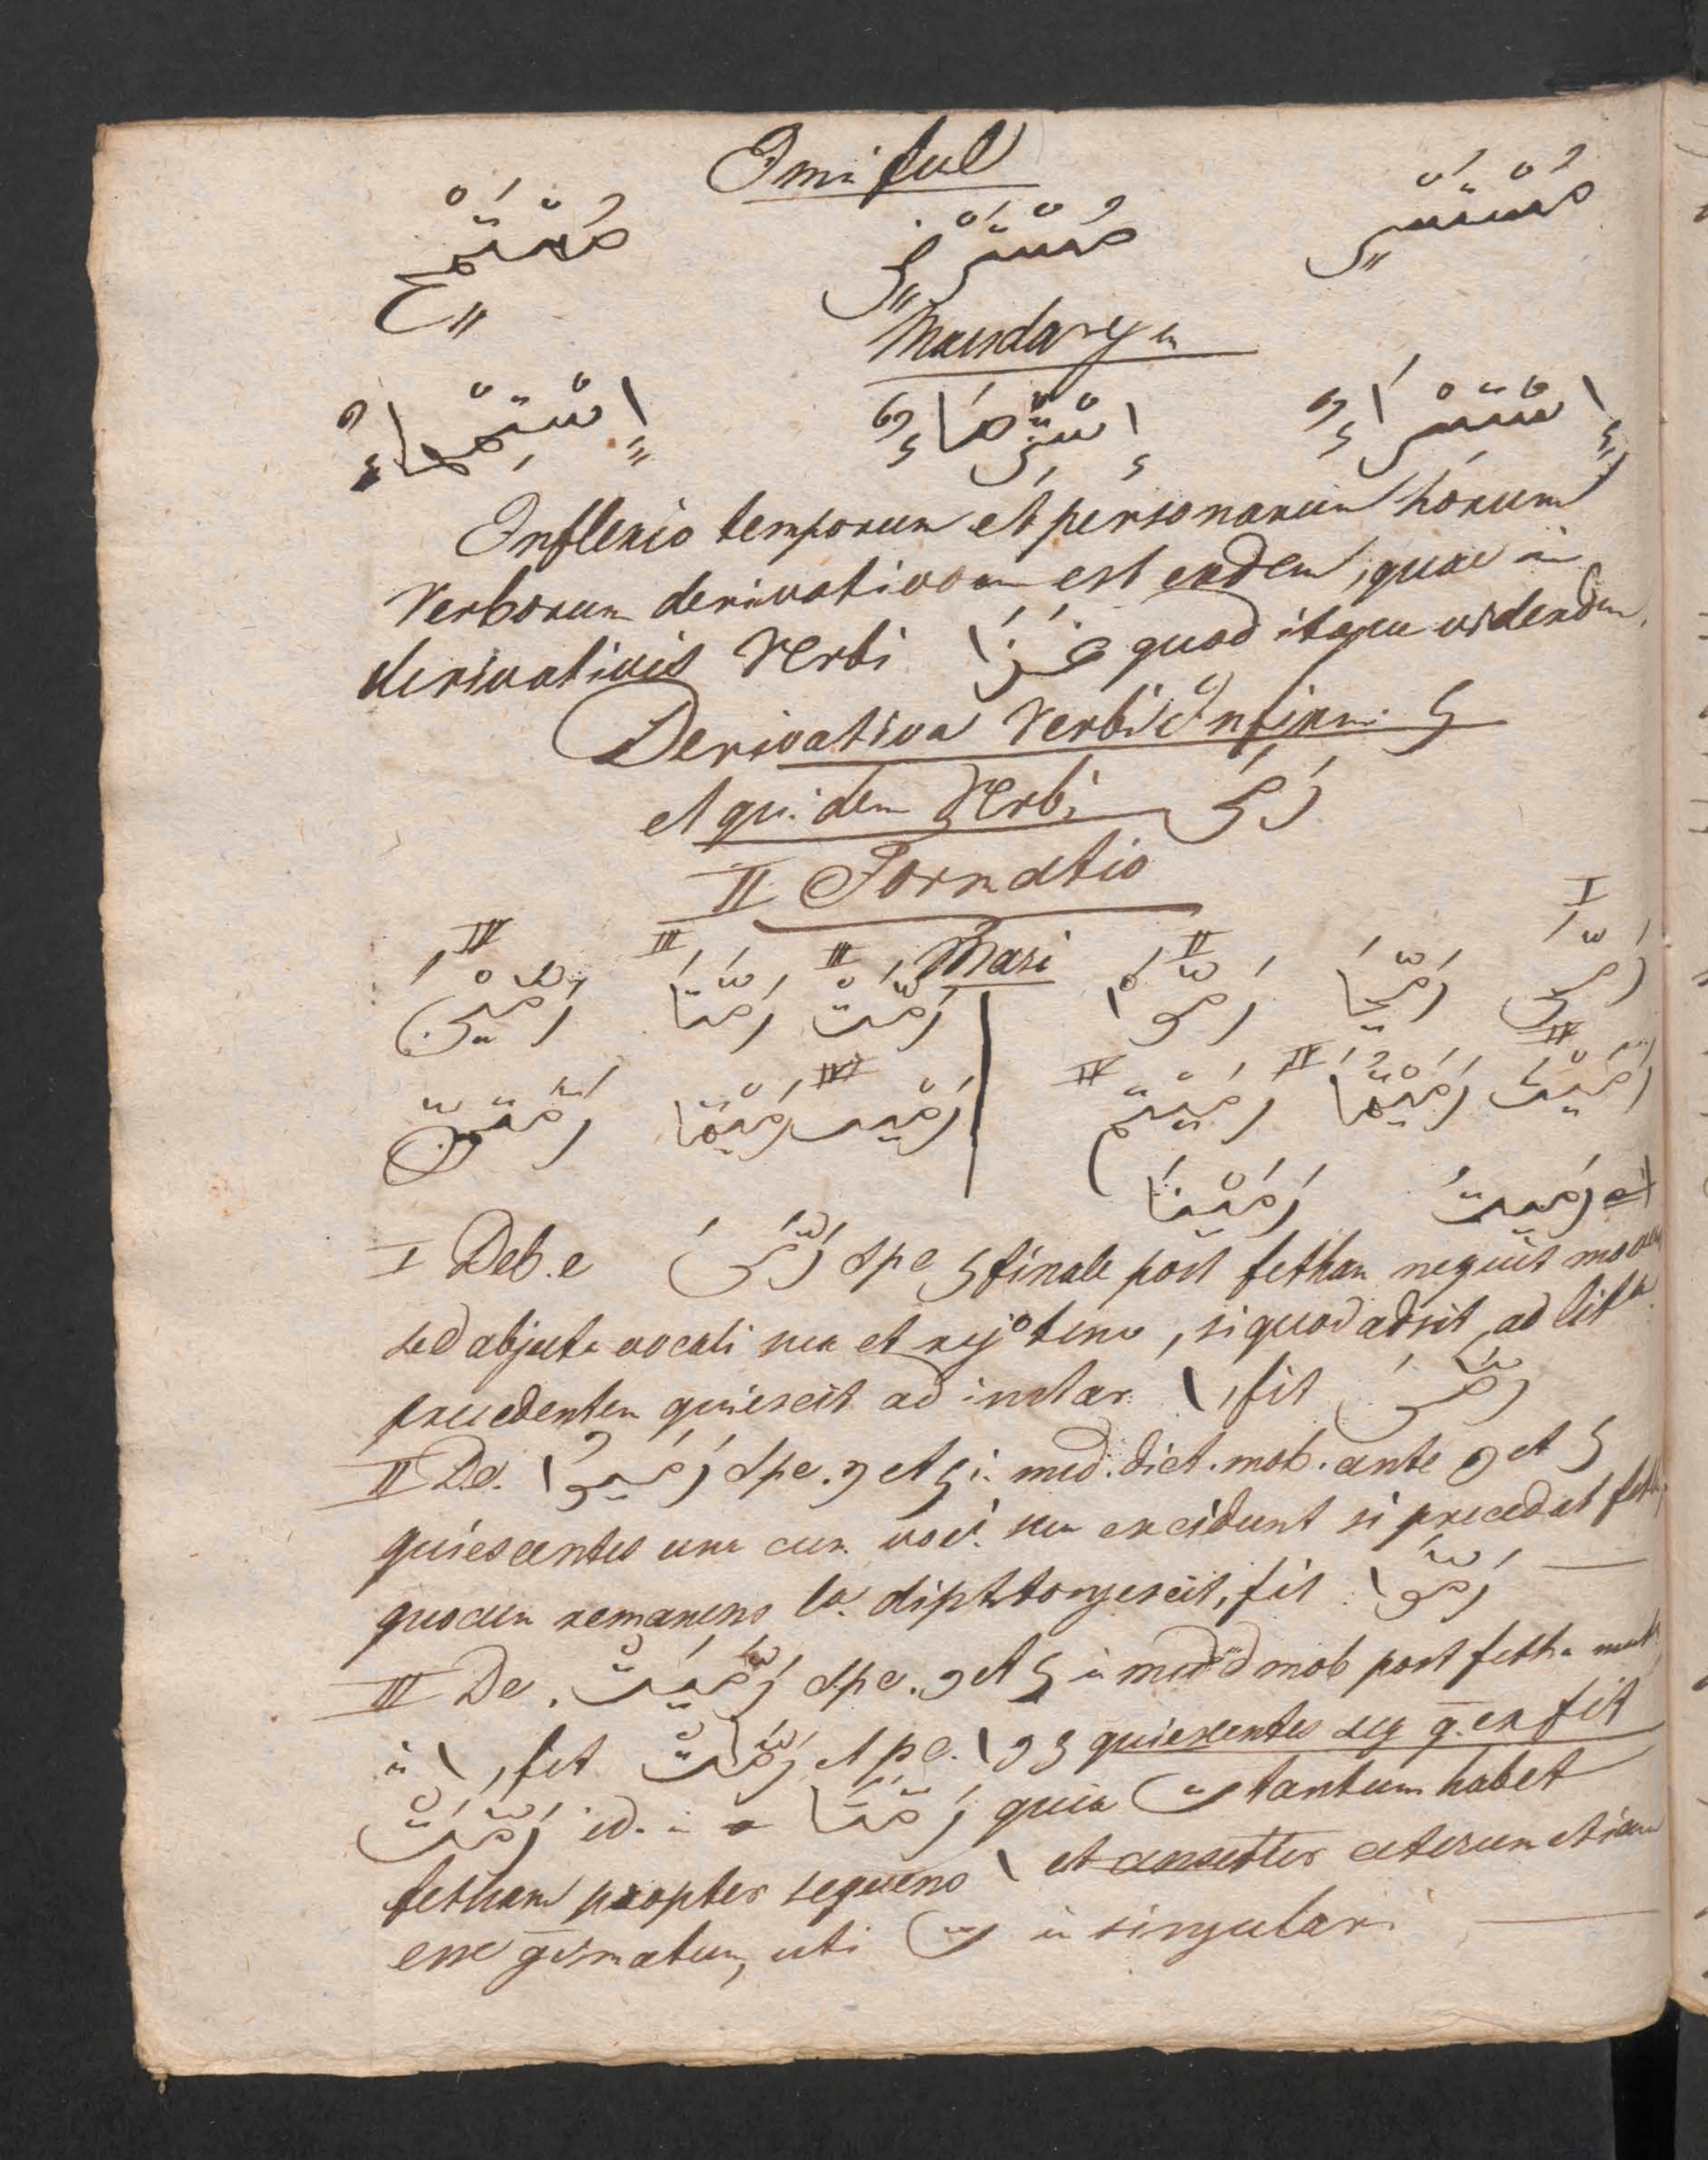 Ismi ful
مُسْتَسْرٍ مُسْتَرْضٍ مُسْتَمْحٍ
Masdaryn
إِسْتِسْرَاءٌ إِسْتِرْضَاءٌ إِسْتِمْحَاءٌ
Inflexio temporum et personarum horum
Verborum derivativorum est eadem, quae in
derivativis Verbi غَزَا quod itaque videndum.
Derivativa Verbi Infirmi ي
et quidem Verbi رَمَى
II Formatio
Mazi
I II III III IV
رَمَّى رَمَّيَا رَمَّوْا رَمَّتْ رَمَّتَا رَمَّيْنَ
IV IV IV IV
رَمَّيْتَ رَمَّيْتُمَا رَمَّيْتُمْ رَمَّيْتِ رَمَّيْتُمَا رَمَّيْتُنَّ
رَمَّيْتُ رَمَّيْنَا
I Deb. e رَمَّيَ Spe ي finale post fethan nequit moveri
sed abjecta vocali sua et rejo teno, si quod adsit, ad litt.
precedentem quiescit ad instar ا, fit رَمَّى
II De. رَمَّيُوا Spe. و et ي in med. dict. mob. ante و et ي
quiescentes una cum voc. sua excidunt si precedat feth
quocum remanens lo. diphtongescit, fit رَمَّوْا
III De. رَمَّيَتْ Spe. و et ي in med d mob post fetha mut.
in ا, fit رَمَّاتْ et pe. ا و ي quiescentes seq g. ex fit
رَمَّتْ id. in رَمَّتَا quia ت tantum habet
fetham propter sequens ا et censetur ceterum etiam
esse gesmatum, uti ت in singulari